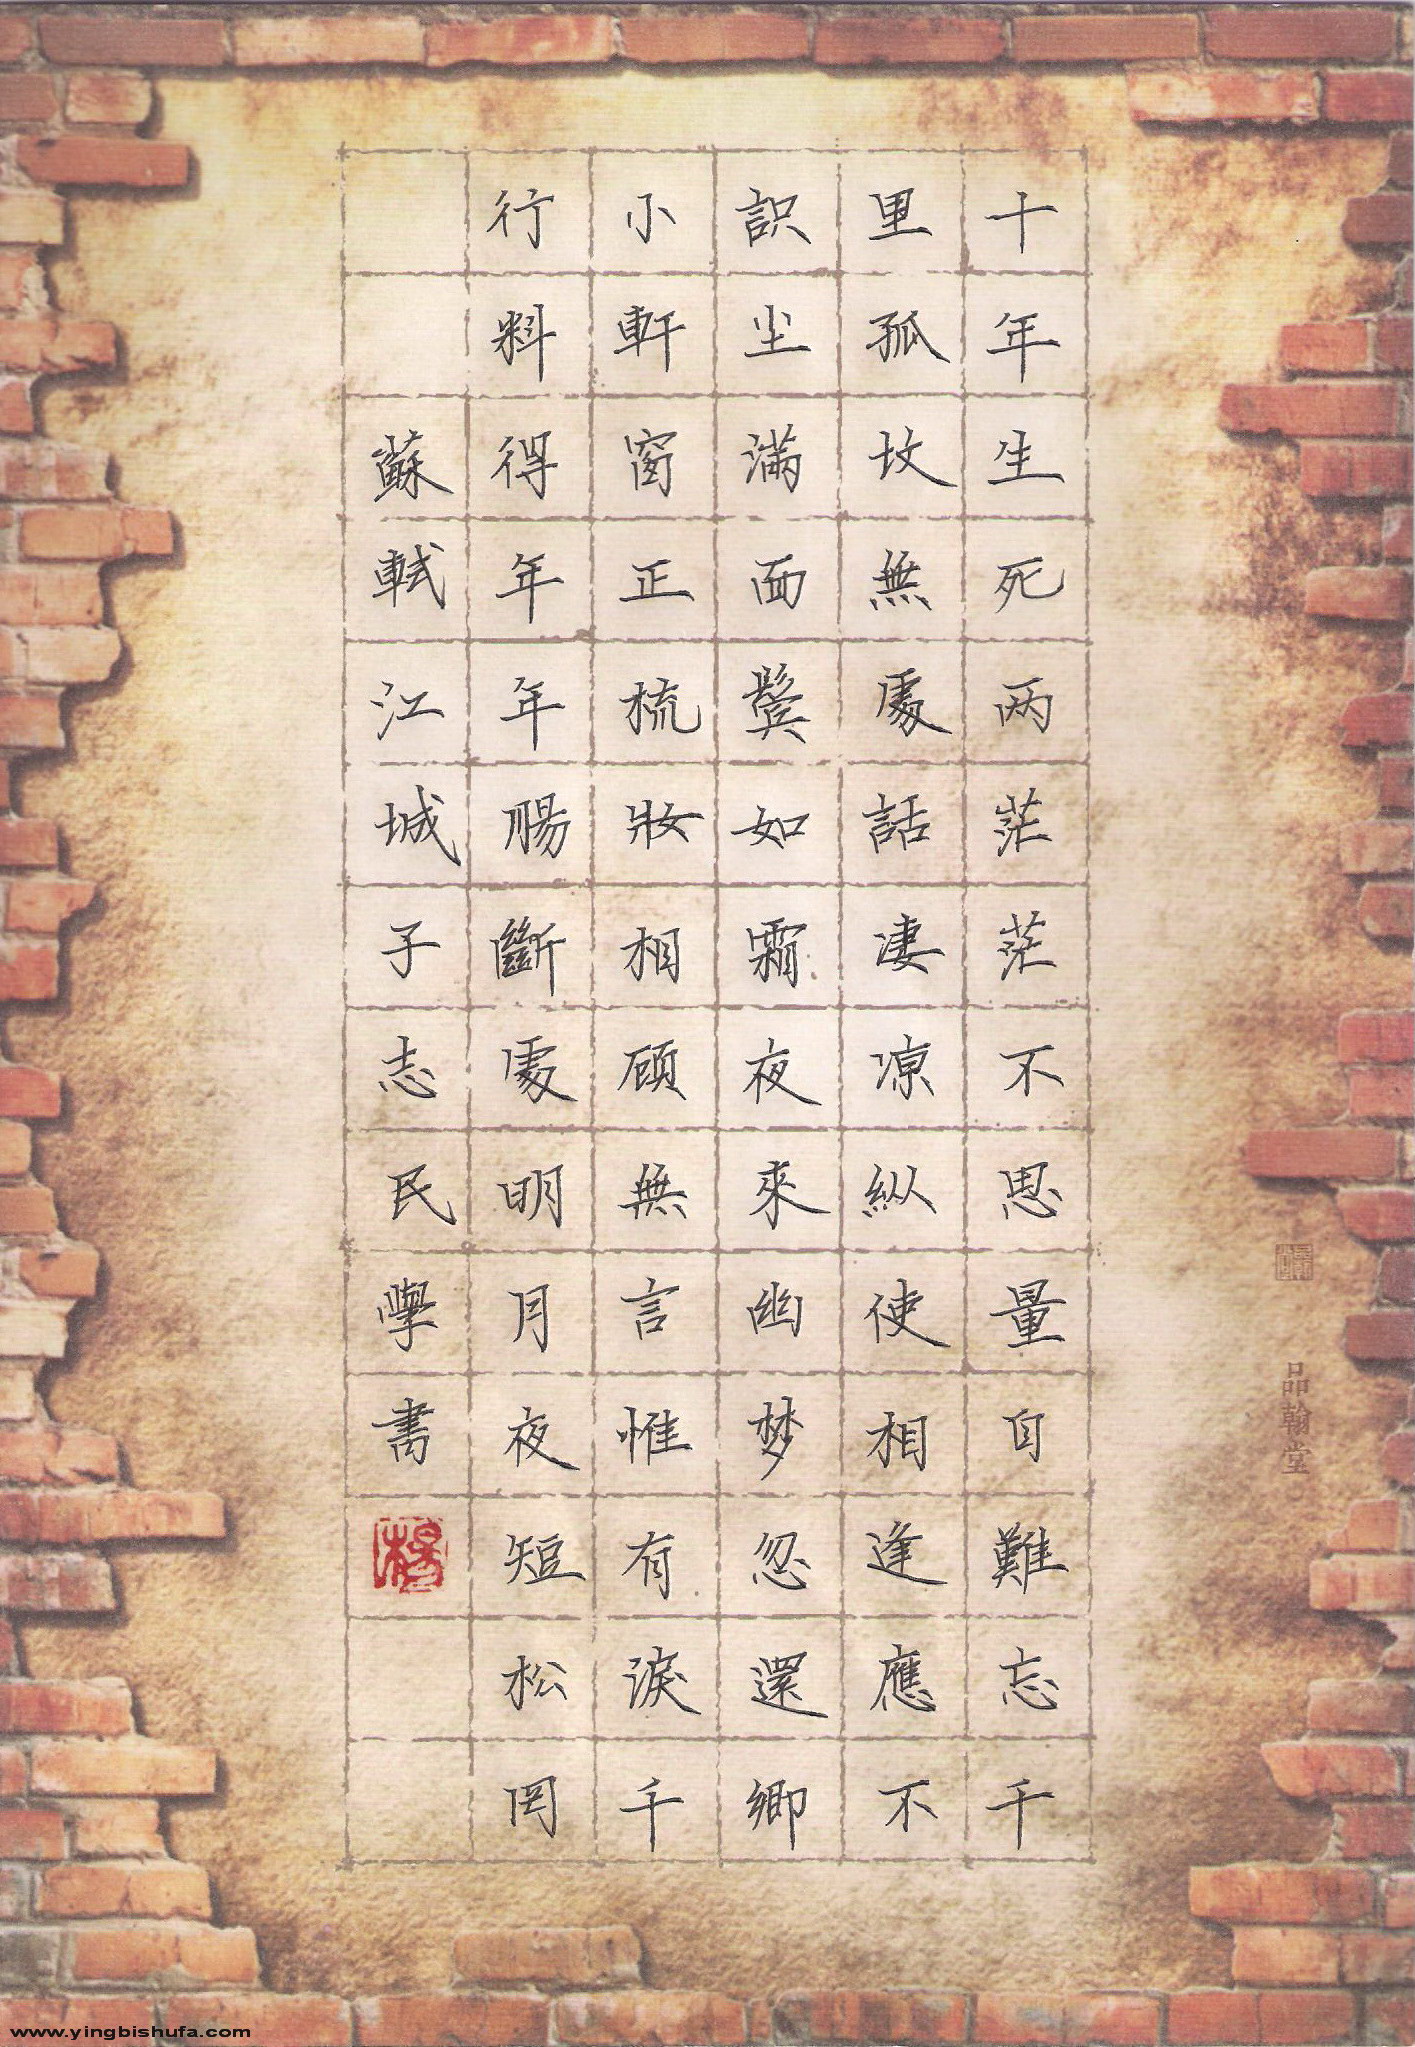 十年生死两茫茫不思量自難忘千
里孤坟無處話淒凉縱使相逢應不
識尘滿面鬢如霜夜來幽梦忽還鄉
小軒窗正梳妝相顾無言惟有淚千
行料得年年腸斷處明月夜短松冈
蘇軾江城子志民學書
品翰堂
www.yingbishufa.com